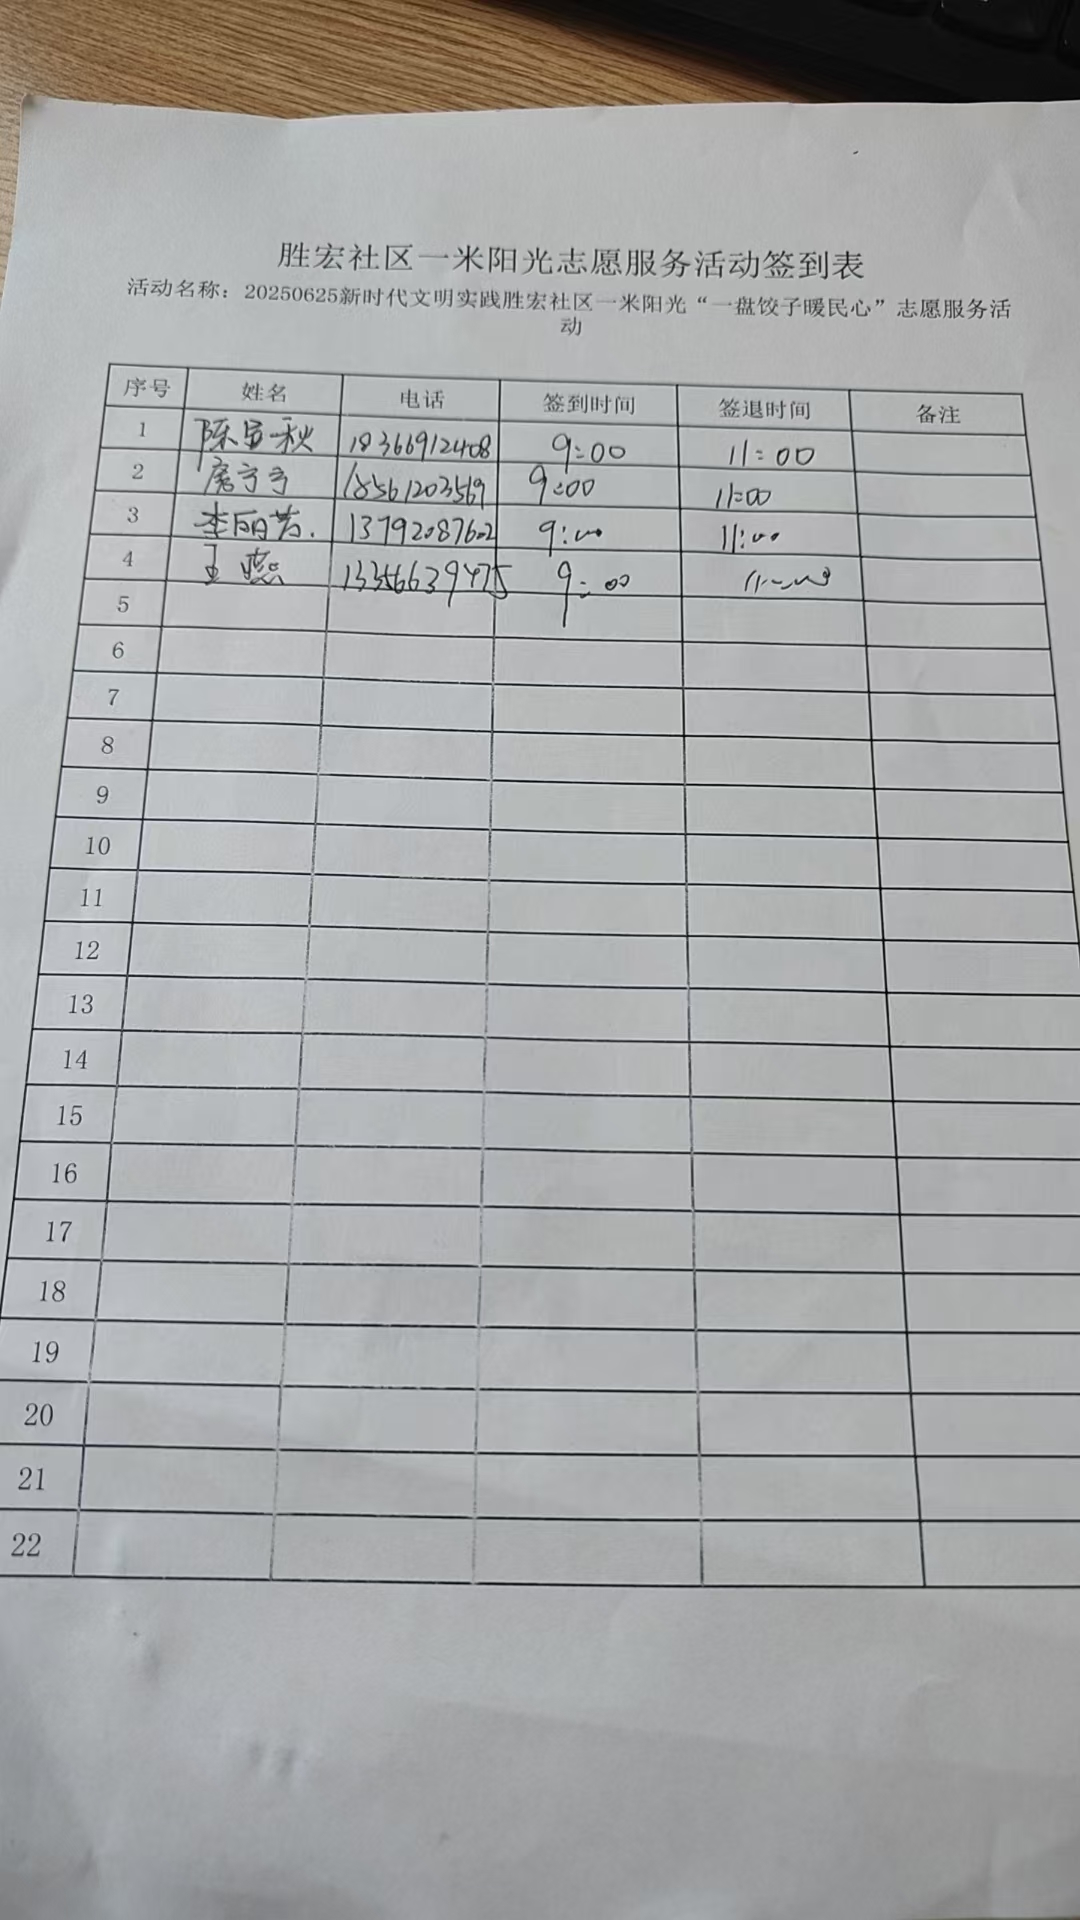 胜宏社区一米阳光志愿服务活动签到表
活动名称：20250625新时代文明实践胜宏社区一米阳光“一盘饺子暖民心”志愿服务活
动
序号 姓名 电话 签到时间 签退时间 备注
1 陈宜秋 18366912408 9:00 11:00
2 宁宁 18561203569 9:00 11:00
3 李丽芳. 13792087602 9:00 11:00
4 王燕 13356639475 9:00 11:00
5
6
7
8
9
10
11
12
13
14
15
16
17
18
19
20
21
22